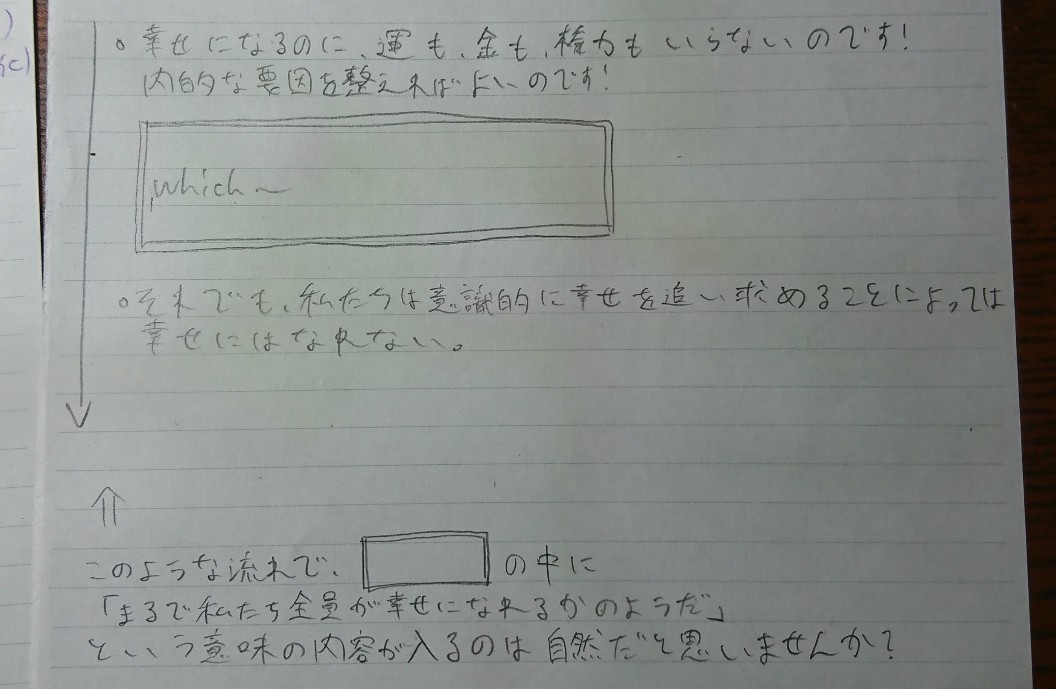 )
(c)
。幸せになるのに、運も、金も、権力もいらないのです!
内的な要因を整えればよいのです!
which~
。それでも、私たちは意識的に幸せを追い求めることによっては
幸せにはなれない。
⇑
このような流れで、 の中に
「まるで私たち全員が幸せになれるかのようだ」
という意味の内容が入るのは自然だと思いませんか?